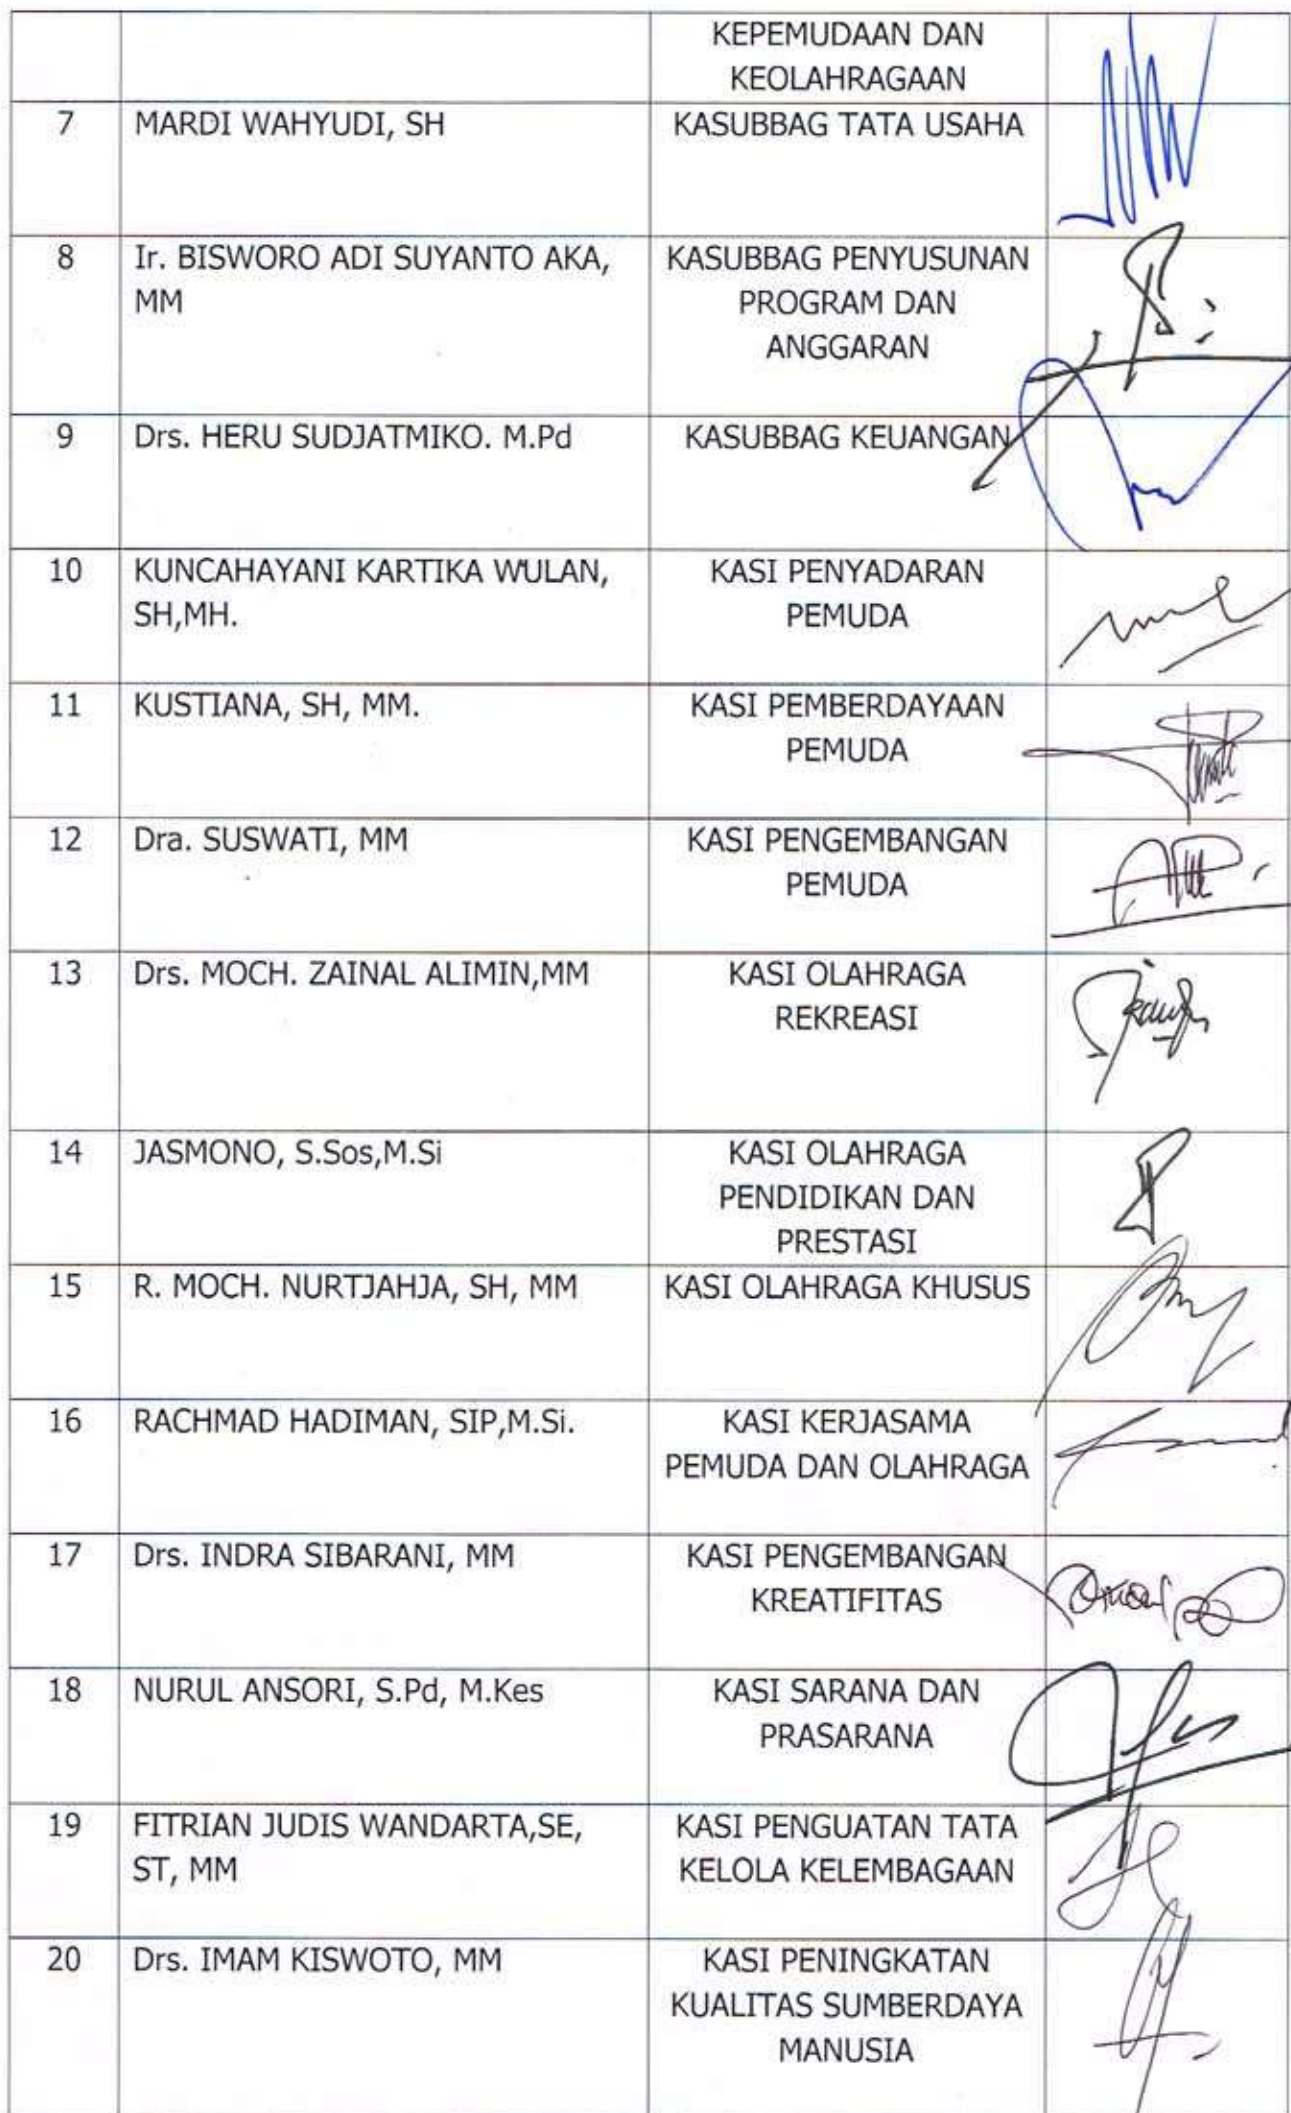 KEPEMUDAAN DAN
KEOLAHRAGAAN
7 MARDI WAHYUDI, SH KASUBBAG TATA USAHA
8 Ir. BISWORO ADI SUYANTO AKA, KASUBBAG PENYUSUNAN
MM PROGRAM DAN
ANGGARAN
9 Drs. HERU SUDJATMIKO. M.Pd KASUBBAG KEUANGAN
10 KUNCAHAYANI KARTIKA WULAN, KASI PENYADARAN
SH,MH. PEMUDA
11 KUSTIANA, SH, MM. KASI PEMBERDAYAAN
PEMUDA
12 Dra. SUSWATI, MM KASI PENGEMBANGAN
PEMUDA
13 Drs. MOCH. ZAINAL ALIMIN,MM KASI OLAHRAGA
REKREASI
14 JASMONO, S.Sos,M.Si KASI OLAHRAGA
PENDIDIKAN DAN
PRESTASI
15 R. MOCH. NURTJAHJA, SH, MM KASI OLAHRAGA KHUSUS
16 RACHMAD HADIMAN, SIP,M.Si. KASI KERJASAMA
PEMUDA DAN OLAHRAGA
17 Drs. INDRA SIBARANI, MM KASI PENGEMBANGAN
KREATIFITAS
18 NURUL ANSORI, S.Pd, M.Kes KASI SARANA DAN
PRASARANA
19 FITRIAN JUDIS WANDARTA,SE, KASI PENGUATAN TATA
ST, MM KELOLA KELEMBAGAAN
20 Drs. IMAM KISWOTO, MM KASI PENINGKATAN
KUALITAS SUMBERDAYA
MANUSIA